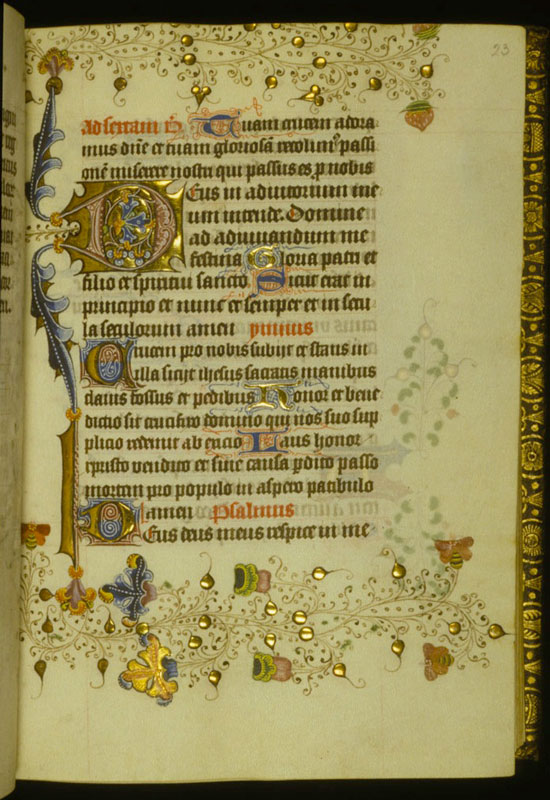 23
ad sextam v̄s Tuam crucem adora
mus dn̄e et tuam gloriosā recolim⁹ passi
onē miserere nostri qui passus es p nobis
Deus in adiutorium me
um intende. Domine
ad adiuuandum me
festina Gloria patri et
filio et spiritui sancto Sicut erat in
principio et nunc et semper et in secu
la seculorum amen pnnus
Crucem pro nobis subijt et stans in
illa sicijt ihesus sacratis manibus
clauis fossus et pedibus Honor et bene
dictio sit crucifixo domino qui nos suo sup
plicio redemit ab exicio Laus honor
cpristo vendito et sine causa pdito passo
mortem pro populo in aspero patibulo
amen Psalmus
Deus deus meus respice in me